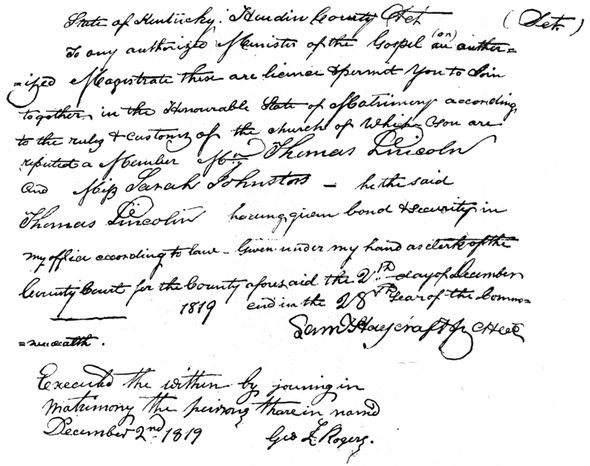 State of Kentucky, Hardin County Sct. (Sct.)
To any authorized Minister of the Gospel (or) an author=
=ized Magistrate these are licence & permit You to Join
together in the Honourable State of Matrimony according
to the rules & customs of the church of Which You are
reputed a Member Mr. Thomas Lincoln
and Miss Sarah Johnston — he the said
Thomas Lincolin having given bond & security in
my office according to law — Given under my hand as clerk of the
County Court for the County aforesaid the 2nd day of December
1819 and in the 28th Year of the Commo=
=nwealth.
Saml Haycraft Jr CHCC
Executed the within by joining in
matrimony the persons therein named
December 2nd 1819 Geo L Rogers.